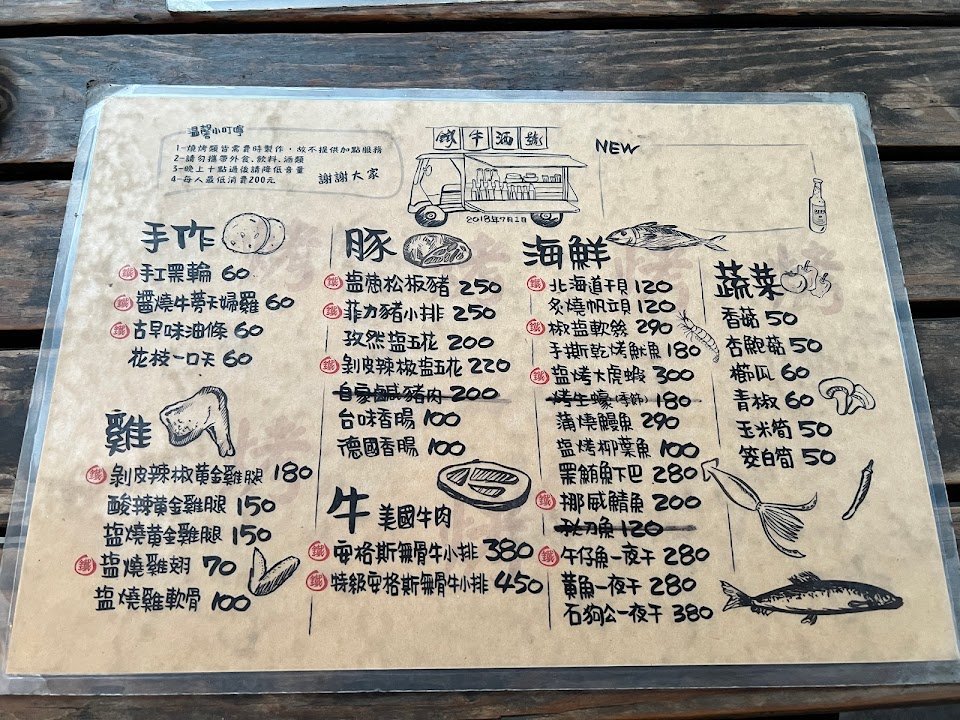 溫馨小叮嚀
1-燒烤類皆需費時製作，故不提供加點服務
2-請勿攜帶外食、飲料、酒類
3-晚上十點過後請降低音量
4-每人最低消費200元
謝謝大家
鐵牛酒號
2018年7月2日
NEW
手作
鐵 手工黑輪 60
鐵 醬燒牛蒡天婦羅 60
鐵 古早味油條 60
花枝一口天 60
雞
鐵 剝皮辣椒黃金雞腿 180
酸辣黃金雞腿 150
塩燒黃金雞腿 150
鐵 塩燒雞翅 70
塩燒雞軟骨 100
豚
鐵 塩蔥松板豬 250
鐵 菲力豬小排 250
孜然塩五花 200
鐵 剝皮辣椒塩五花 220
自家鹹豬肉 200
台味香腸 100
德國香腸 100
牛 美國牛肉
鐵 安格斯無骨牛小排 380
鐵 特級安格斯無骨牛小排 450
海鮮
鐵 北海道干貝 120
炙燒帆立貝 120
鐵 椒塩軟絲 290
手撕乾烤魷魚 180
鐵 塩烤大虎蝦 300
烤生蠔(季節) 180
蒲燒鰻魚 290
塩烤柳葉魚 100
黑鮪魚下巴 280
鐵 挪威鯖魚 200
秋刀魚 120
鐵 午仔魚一夜干 280
黃魚一夜干 280
石狗公一夜干 380
蔬菜
香菇 50
杏鮑菇 50
櫛瓜 60
青椒 60
玉米筍 50
筊白筍 50